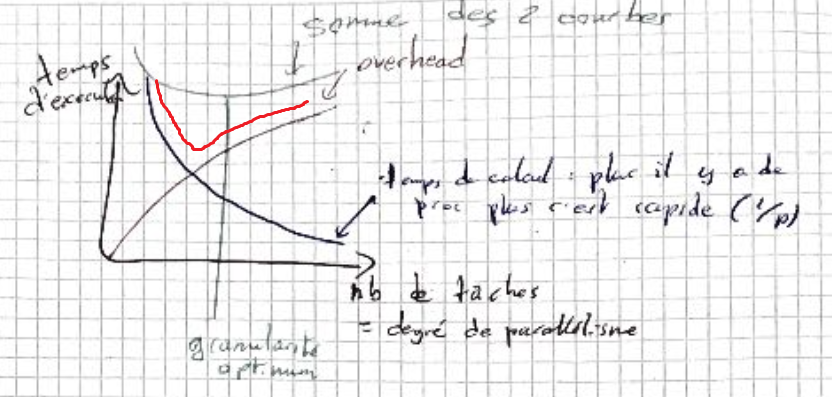 somme des 2 courbes
temps
d'execution
overhead
temps de calcul : plus il y a de
proc plus c'est rapide (1/p)
nb de taches
= degré de parallélisme
granularité
optimum